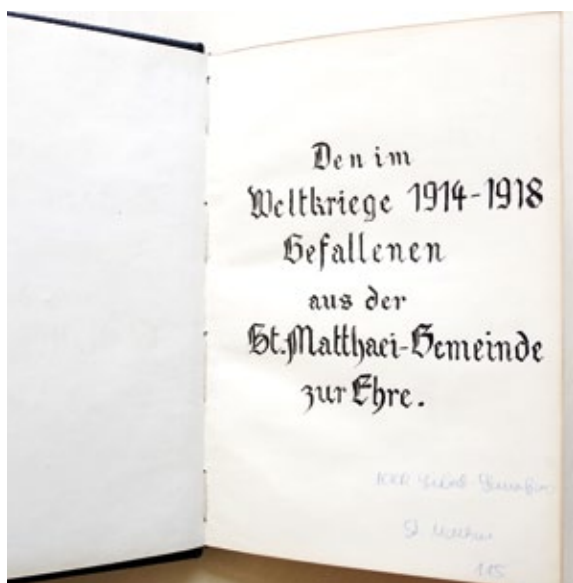 Den im
Weltkriege 1914-1918
Gefallenen
aus der
St. Matthaei-Gemeinde
zur Ehre.
St. Matthäus
115